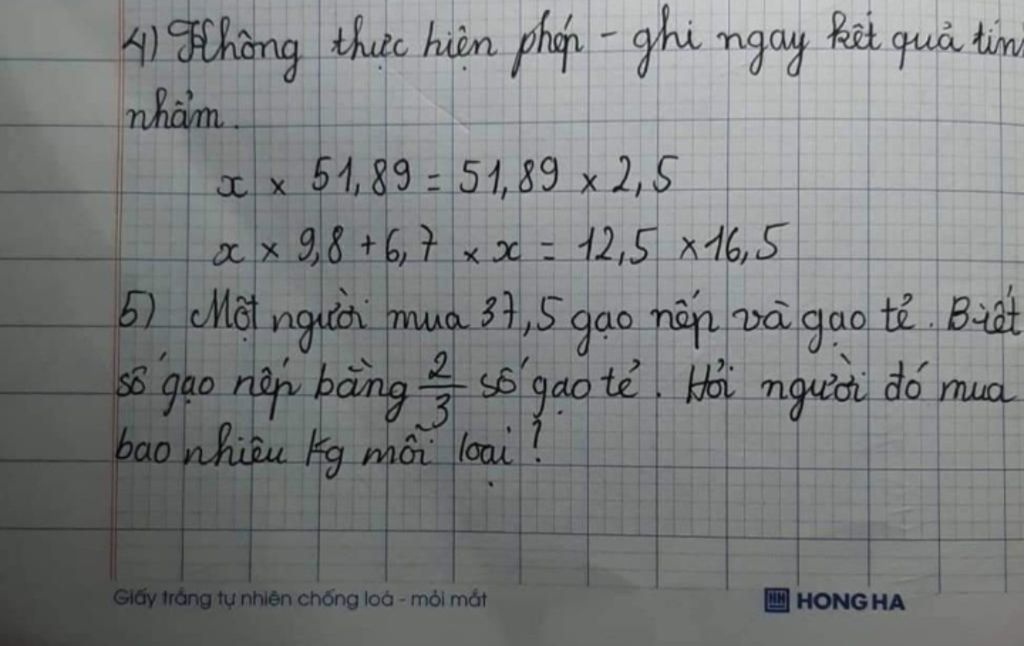 4) Không thực hiện phép - ghi ngay kết quả tín
nhẩm.
x × 51,89 = 51,89 × 2,5
x × 9,8 + 6,7 × x = 12,5 × 16,5
5) Một người mua 37,5 gạo nếp và gạo tẻ. Biết
số gạo nếp bằng 2/3 số gạo tẻ. Hỏi người đó mua
bao nhiêu kg mỗi loại?
Giấy trắng tự nhiên chống loá - mỏi mắt
HH HONG HA